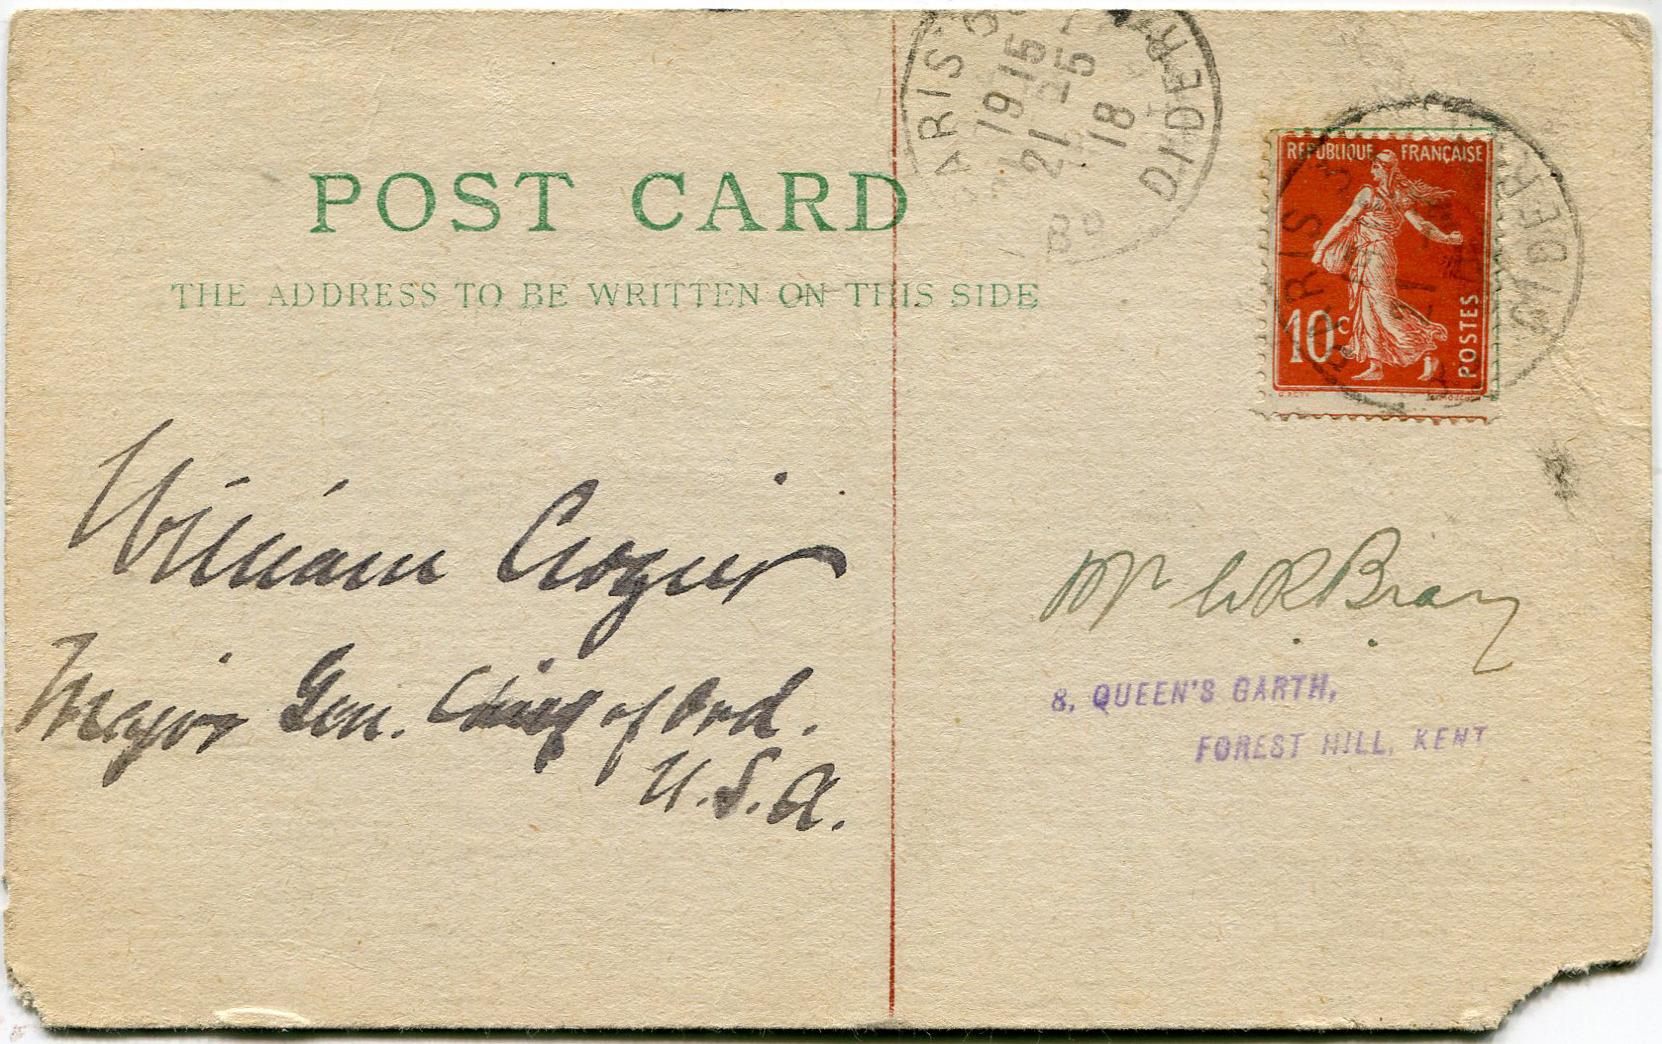 POST CARD
THE ADDRESS TO BE WRITTEN ON THIS SIDE
PARIS
19 15
21 25
18
BD DIDER
REPUBLIQUE FRANÇAISE
10c
POSTES
PARIS
William Crozier
Major Gen. Chief of Ord.
U.S.A.
Mr W R Bray
8, QUEEN'S GARTH,
FOREST HILL, KENT